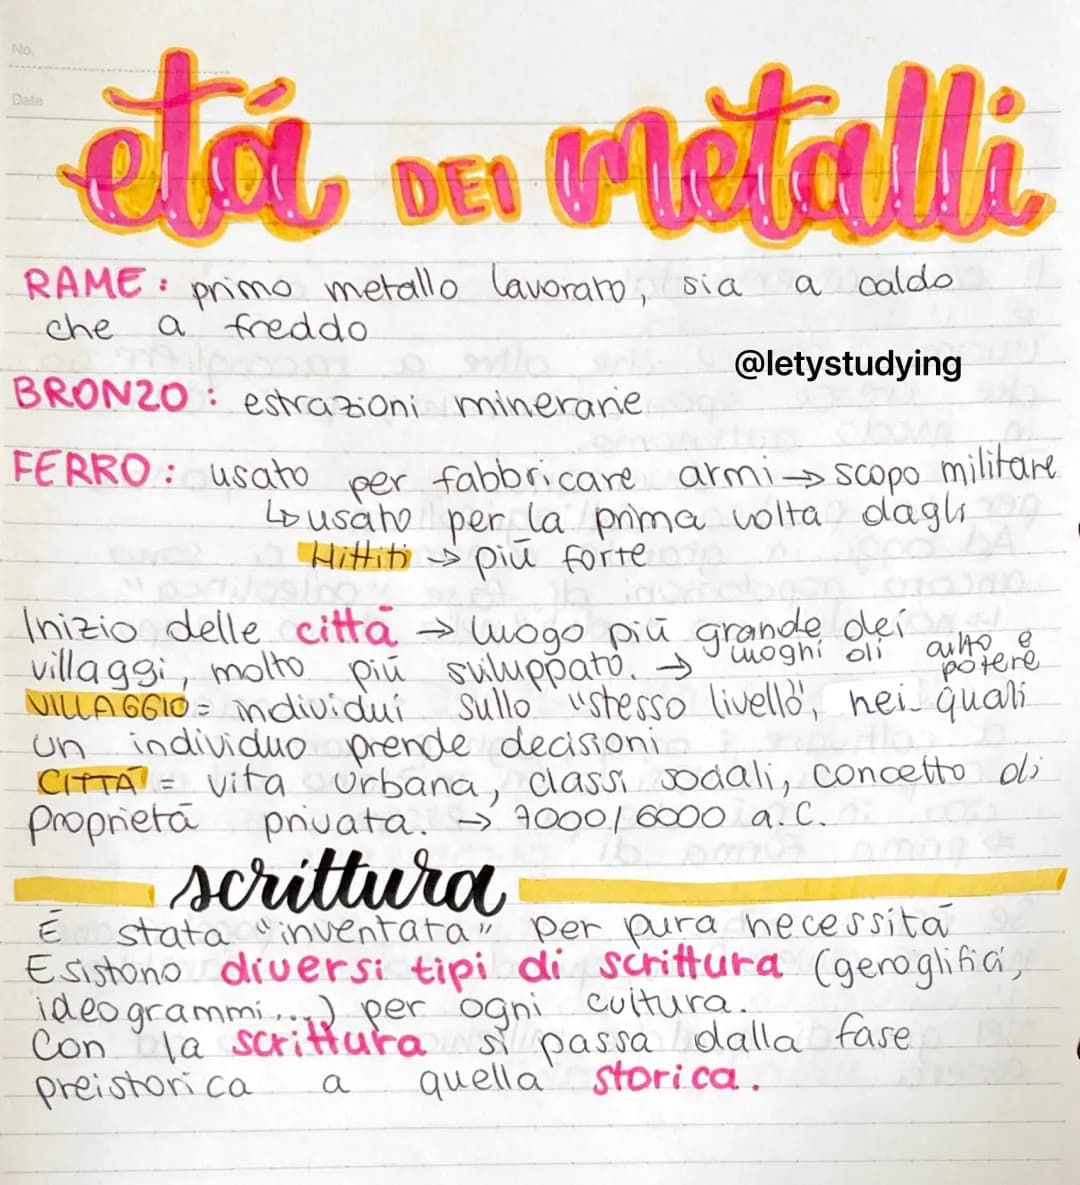 No.
Data
etá DEI metalli
RAME: primo metallo lavorato, sia a caldo
che a freddo
@letystudying
BRONZO: estrazioni minerarie
FERRO: usato per fabbricare armi → scopo militare
↳ usato per la prima volta dagli
Hittiti → più forte
Inizio delle città → luogo più grande dei
villaggi, molto più sviluppato. → luoghi di culto e potere
VILLAGGIO = individui sullo "stesso livello", nei quali
un individuo prende decisioni
CITTÀ = vita urbana, classi sociali, concetto di
proprietà privata. → 7000/6000 a.C.
scrittura
È stata "inventata" per pura necessità
Esistono diversi tipi di scrittura (geroglifici,
ideogrammi...) per ogni cultura.
Con la scrittura si passa dalla fase
preistorica a quella storica.